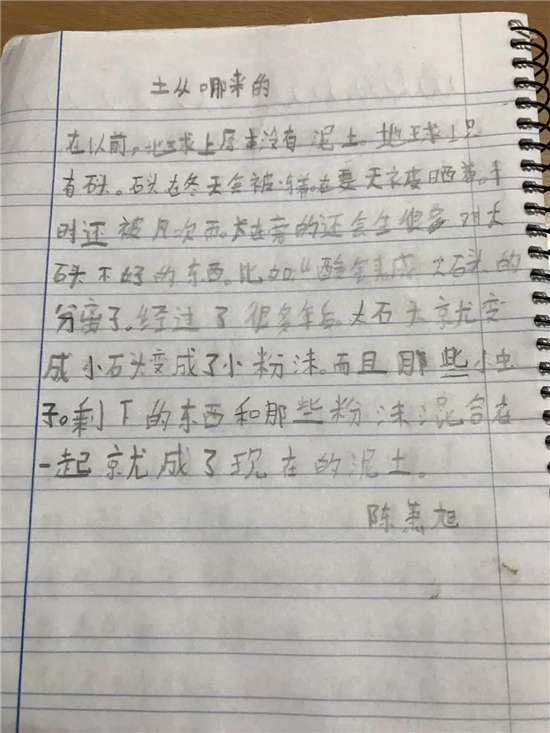 土从哪来的
在以前,地球上原本没有泥土。地球上只
有石头。石头在冬天会被冻着。在夏天被晒着。平
时还被风吹雨。长在旁的还会生很多对大
石头不好的东西。比如“酸
分离子。经过了很多年后大石头就变
成小石头变成了小粉沫。而且那些小虫
子。剩下的东西和那些粉沫混合在
一起就成了现在的泥土。
陈萧旭